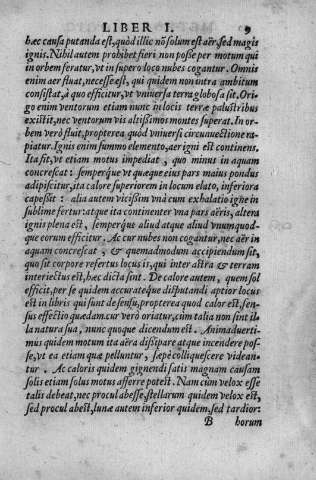 LIBER I. 9
hæc causa putanda est, quòd illic nō solum est aër, sed magis
ignis. Nihil autem prohibet fieri non posse per motum qui
in orbem feratur, vt in supero loco nubes cogantur. Omnis
enim aer fluat, necesse est, qui quidem non intra ambitum
consistat, à quo efficitur, vt vniuersa terra globosa sit. Ori-
go enim ventorum etiam nunc in locis terræ palustribus
existit, nec ventorum vis altissimos montes superat. In or-
bem verò fluit, propterea quòd vniuersi circuauectione ra-
piatur. Ignis enim summo elemento, aer igni est continens.
Ita fit, vt etiam motus impediat, quo minus in aquam
concrescat: semperq́ue vt quæque eius pars maius pondus
adipiscitur, ita calore superiorem in locum elato, inferiora
capessit: alia autem vicissim vnà cum exhalatio igne in
sublime fertur: atque ita continenter vna pars aëris, altera
ignis plena est, semperq́ue aliud atque aliud vnumquod-
que eorum efficitur. Ac cur nubes non cogantur, nec aër in
aquam concrescat, & quemadmodum accipiendum sit,
quo sit corpore refertus locus is, qui inter astra & terram
interiectus est, hæc dicta sint. De calore autem, quem sol
efficit, per se quidem accurateq́ue disputandi aptior locus
est in libris qui sunt de sensu, propterea quòd calor est, sen-
sus effectio quædam. cur verò oriatur, cùm talia non sint il-
la natura sua, nunc quoque dicendum est. Animaduerti-
mus quidem motum ita aëra dissipare atque incendere pos-
se, vt ea etiam quæ pelluntur, sæpè colliquescere videan-
tur. Ac caloris quidem gignendi satis magnam causam
solis etiam solus motus afferre potest. Nam cùm velox esse
talis debeat, nec procul abesse, stellarum quidem velox est,
sed procul abest, lunæ autem inferior quidem, sed tardior:
B horum